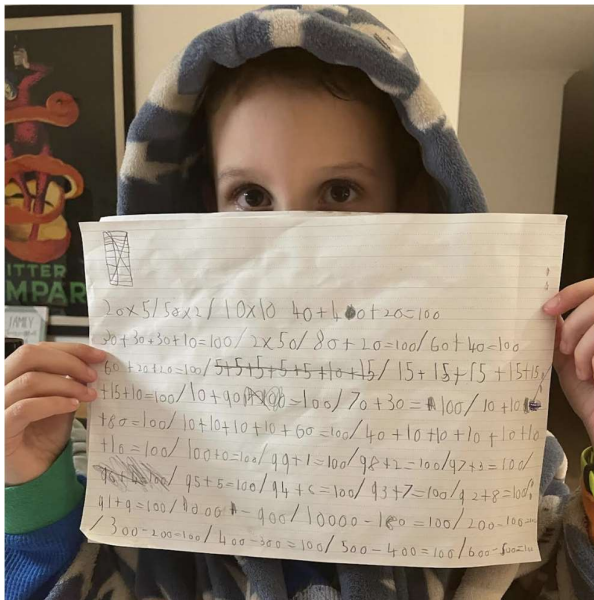 ITTER
MPAR
FAMILY
20x5/50x2/10x10 40+40+20=100
30+30+30+10=100/2x50/80+20=100/60+40=100
60+20+20=100/5+5+5+5+5+10+15/15+15+15+15+15
+15+10=100/10+90=100/70+30=100/10+10
+80=100/10+10+10+10+60=100/40+10+10+10+10+10
+10=100/100+0=100/99+1=100/98+2=100/97+3=100/
95+5=100/94+6=100/93+7=100/92+8=100/
91+9=100/1000-900/10000-100=100/200-100=100
/300-200=100/400-300=100/500-400=100/600-500=100